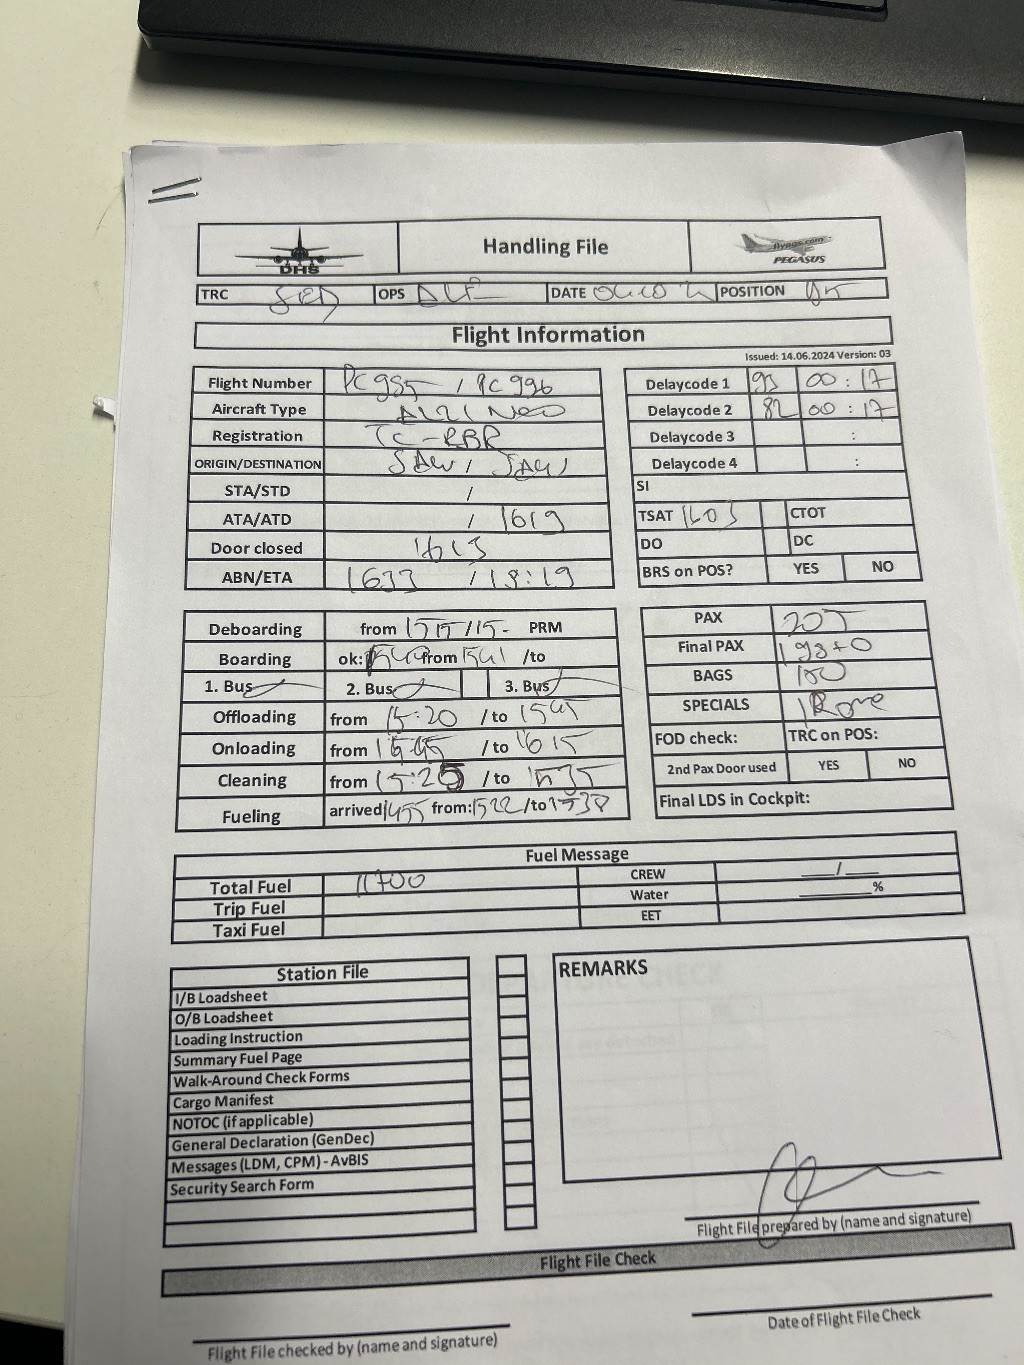 DHS
Handling File
flypgs.com
PEGASUS
TRC OPS DATE POSITION
Flight Information
Issued: 14.06.2024 Version: 03
Flight Number PC 995 / PC 996
Aircraft Type A121 Neo
Registration TC-RBR
ORIGIN/DESTINATION SAW / SAW
STA/STD /
ATA/ATD / 1619
Door closed 1613
ABN/ETA 1633 / 18:19
Delaycode 1 93 00 : 17
Delaycode 2 82 00 : 17
Delaycode 3 :
Delaycode 4 :
SI
TSAT 1603 CTOT
DO DC
BRS on POS? YES NO
Deboarding from PRM
Boarding ok: from 1541 /to
1. Bus 2. Bus 3. Bus
Offloading from 15:20 /to 1545
Onloading from /to 1615
Cleaning from 15:25 /to 1535
Fueling arrived 1455 from: 1522 /to 1538
PAX 205
Final PAX 198+0
BAGS
SPECIALS
FOD check: TRC on POS:
2nd Pax Door used YES NO
Final LDS in Cockpit:
Fuel Message
Total Fuel 11700 CREW ___/___
Trip Fuel Water ______%
Taxi Fuel EET
Station File
I/B Loadsheet
O/B Loadsheet
Loading Instruction
Summary Fuel Page
Walk-Around Check Forms
Cargo Manifest
NOTOC (if applicable)
General Declaration (GenDec)
Messages (LDM, CPM) - AvBIS
Security Search Form
REMARKS
Flight File prepared by (name and signature)
Flight File Check
Flight File checked by (name and signature)
Date of Flight File Check